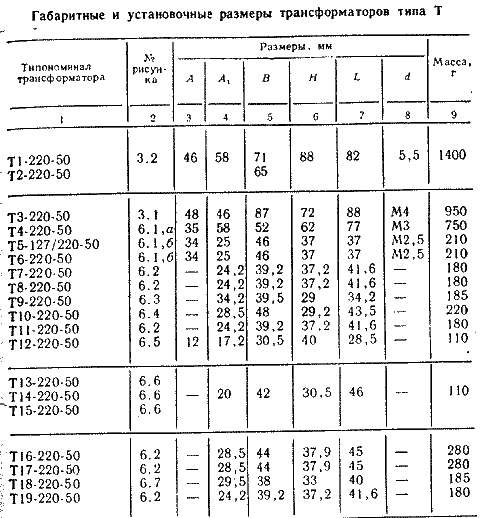 Габаритные и установочные размеры трансформаторов типа Т
Типономинал трансформатора | № рисун-ка | Размеры, мм | Масса, г
A | A₁ | B | H | L | d
1 | 2 | 3 | 4 | 5 | 6 | 7 | 8 | 9
Т1-220-50 | 3.2 | 46 | 58 | 71 | 88 | 82 | 5,5 | 1400
Т2-220-50 | 65
Т3-220-50 | 3.1 | 48 | 46 | 87 | 72 | 88 | М4 | 950
Т4-220-50 | 6.1,а | 35 | 58 | 52 | 62 | 77 | М3 | 750
Т5-127/220-50 | 6.1,б | 34 | 25 | 46 | 37 | 37 | М2,5 | 210
Т6-220-50 | 6.1,б | 34 | 25 | 46 | 37 | 37 | М2,5 | 210
Т7-220-50 | 6.2 | — | 24,2 | 39,2 | 37,2 | 41,6 | — | 180
Т8-220-50 | 6.2 | — | 24,2 | 39,2 | 37,2 | 41,6 | — | 180
Т9-220-50 | 6.3 | — | 34,2 | 39,5 | 29 | 34,2 | — | 185
Т10-220-50 | 6.4 | — | 28,5 | 48 | 29,2 | 43,5 | — | 220
Т11-220-50 | 6.2 | — | 24,2 | 39,2 | 37,2 | 41,6 | — | 180
Т12-220-50 | 6.5 | 12 | 17,2 | 30,5 | 40 | 28,5 | — | 110
Т13-220-50 | 6.6
Т14-220-50 | 6.6 | — | 20 | 42 | 30,5 | 46 | — | 110
Т15-220-50 | 6.6
Т16-220-50 | 6.2 | — | 28,5 | 44 | 37,9 | 45 | — | 280
Т17-220-50 | 6.2 | — | 28,5 | 44 | 37,9 | 45 | — | 280
Т18-220-50 | 6.7 | — | 29,5 | 38 | 33 | 40 | — | 185
Т19-220-50 | 6.2 | — | 24,2 | 39,2 | 37,2 | 41,6 | — | 180